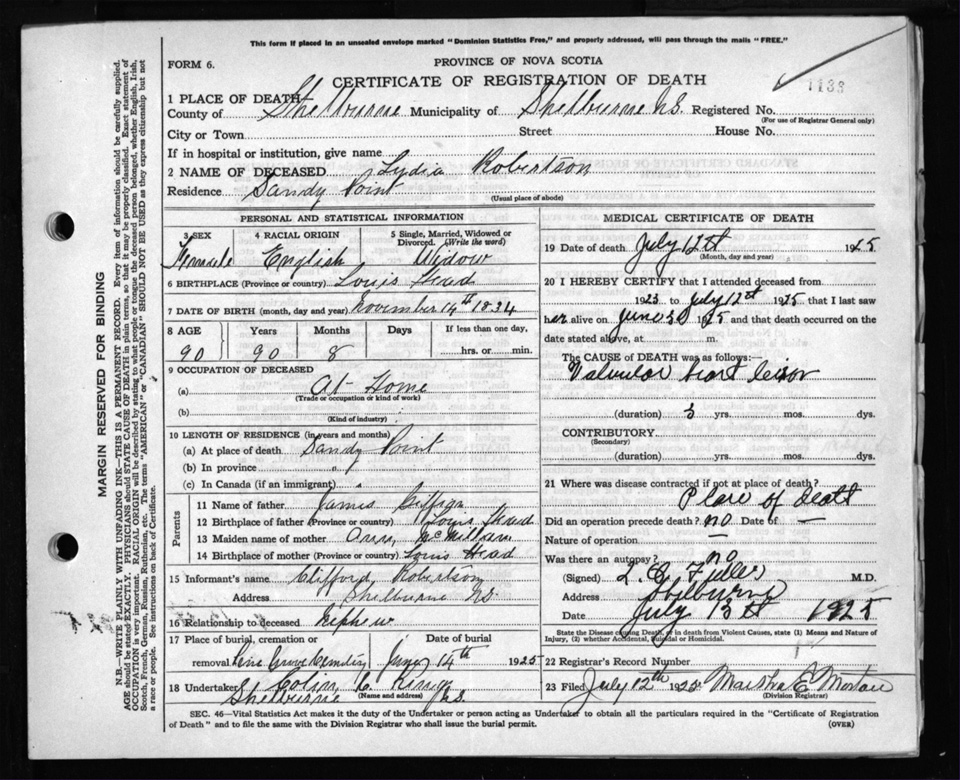 This form if placed in an unsealed envelope marked "Dominion Statistics Free," and properly addressed, will pass through the mails "FREE."
FORM 6.
PROVINCE OF NOVA SCOTIA
CERTIFICATE OF REGISTRATION OF DEATH
1138
1 PLACE OF DEATH—
County of Shelburne Municipality of Shelburne N.S. Registered No.
(For use of Registrar General only)
City or Town Street House No.
If in hospital or institution, give name
2 NAME OF DECEASED Lydia Robertson
Residence Sandy Point
(Usual place of abode)
PERSONAL AND STATISTICAL INFORMATION
3 SEX 4 RACIAL ORIGIN 5 Single, Married, Widowed or Divorced. (Write the word)
Female English Widow
6 BIRTHPLACE (Province or country) Louis Head
7 DATE OF BIRTH (month, day and year) November 14th 1834
8 AGE Years Months Days If less than one day,
90 90 8 hrs. or min.
9 OCCUPATION OF DECEASED
(a) At Home
(Trade or occupation or kind of work)
(b)
(Kind of industry)
10 LENGTH OF RESIDENCE (in years and months)
(a) At place of death Sandy Point
(b) In province "
(c) In Canada (if an immigrant) "
Parents
11 Name of father James
12 Birthplace of father (Province or country) Louis Head
13 Maiden name of mother Ann McMillan
14 Birthplace of mother (Province or country) Louis Head
15 Informant's name Clifford Robertson
Address Shelburne N.S.
16 Relationship to deceased Nephew
17 Place of burial, cremation or removal Date of burial
Pine Grove Cemetery 14th 1925
18 Undertaker Colin C.
Shelburne N.S.
MEDICAL CERTIFICATE OF DEATH
19 Date of death July 12th 1925
(Month, day and year)
20 I HEREBY CERTIFY that I attended deceased from
1923 to July 12th 1925 that I last saw
her alive on June 30 1925 and that death occurred on the
date stated above, at m.
The CAUSE of DEATH was as follows:—
Valvular heart
(duration) 3 yrs. mos. dys.
CONTRIBUTORY
(Secondary)
(duration) yrs. mos. dys.
21 Where was disease contracted if not at place of death?
Place of death
Did an operation precede death? no Date of —
Nature of operation —
Was there an autopsy? no
(Signed) L. O. Fuller M.D.
Address Shelburne
Date July 13th 1925
State the Disease causing Death, or in death from Violent Causes, state (1) Means and Nature of
Injury, (2) whether Accidental, Suicidal or Homicidal.
22 Registrar's Record Number
23 Filed July 12th 1925 Martha E. Morton
(Division Registrar)
SEC. 46—Vital Statistics Act makes it the duty of the Undertaker or person acting as Undertaker to obtain all the particulars required in the "Certificate of Registration
of Death" and to file the same with the Division Registrar who shall issue the burial permit.
(OVER)
MARGIN RESERVED FOR BINDING
N.B.—WRITE PLAINLY WITH UNFADING INK—THIS IS A PERMANENT RECORD. Every item of information should be carefully supplied.
AGE should be stated EXACTLY. PHYSICIANS should STATE CAUSE OF DEATH in plain terms, so that it may be properly classified. Exact statement of
OCCUPATION is very important. RACIAL ORIGIN will be described by stating to what people or tongue the deceased person belonged, whether English, Irish,
Scotch, French, German, Russian, Ruthenian, etc. The terms "AMERICAN" or "CANADIAN" SHOULD NOT BE USED as they express citizenship but not
a race or people. See instructions on back of Certificate.